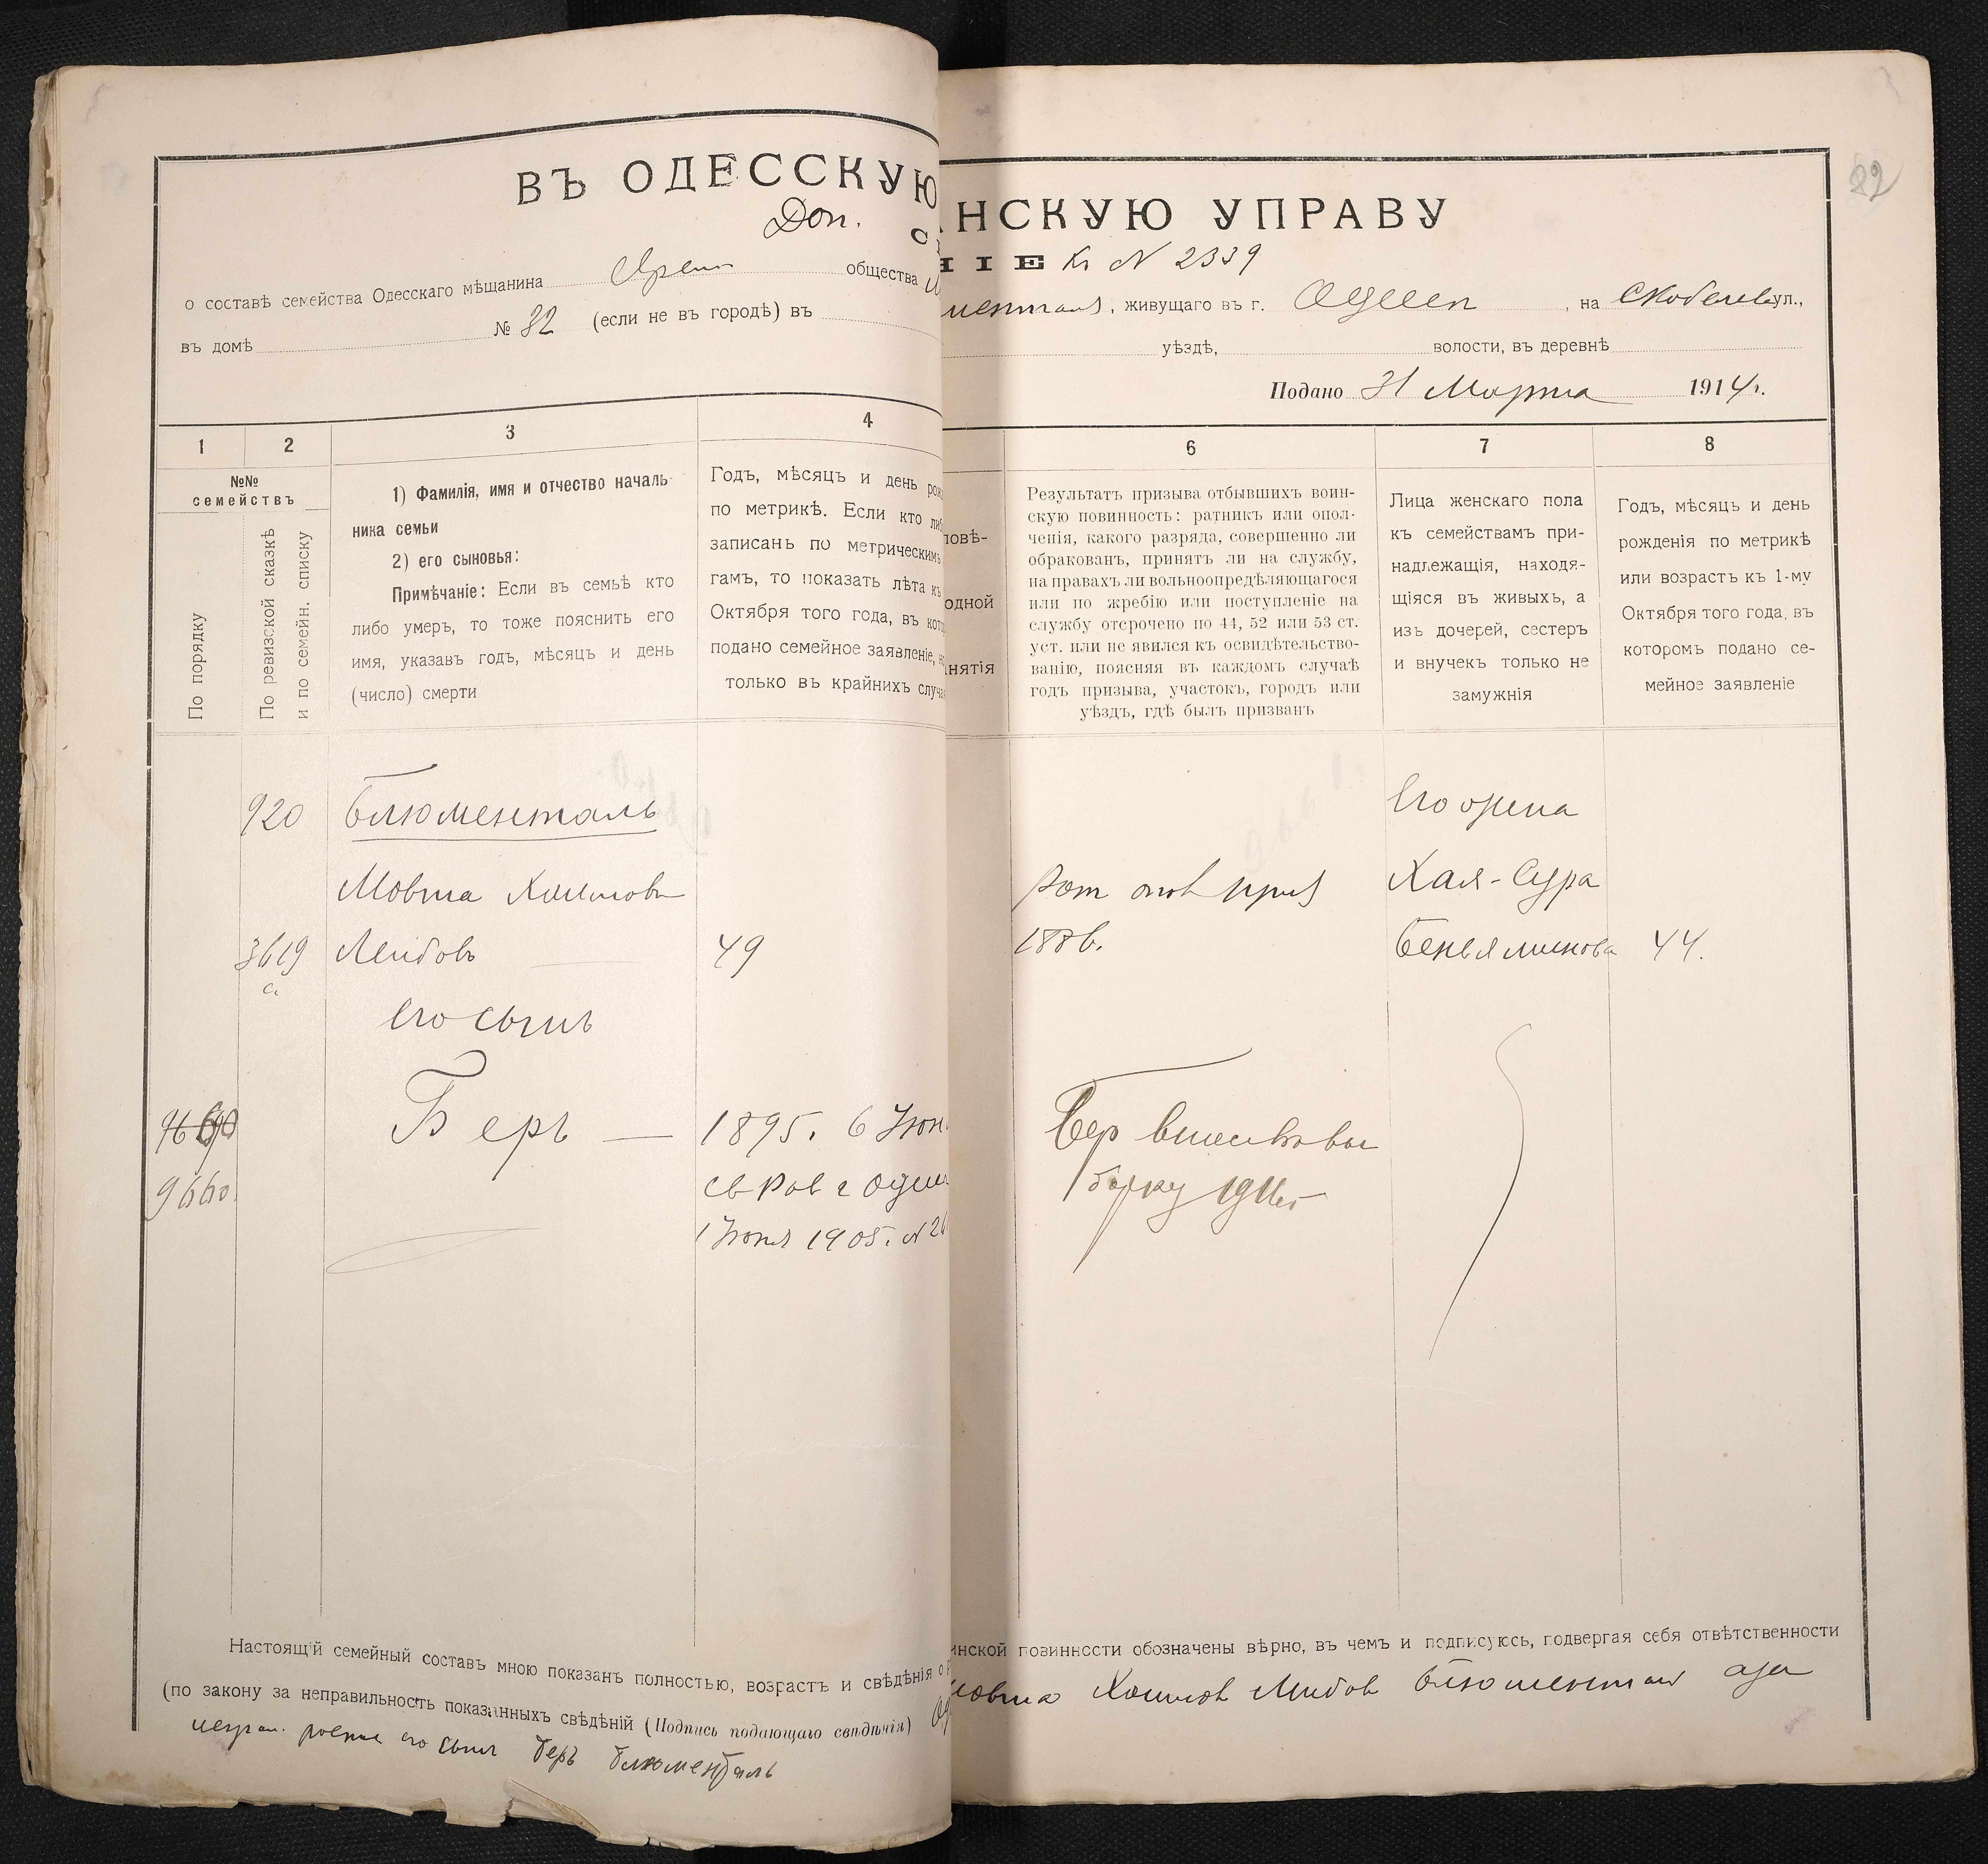 ВЪ ОДЕССКУЮ НСКУЮ УПРАВУ
Доп. НІЕ К N 2339
о составѣ семейства Одесскаго мѣщанина Евреи общества , живущаго въ г. Одессе, на Скобелев ул.,
въ домѣ № 82 (если не въ городѣ) въ уѣздѣ, волости, въ деревнѣ
Подано 31 Марта 1914 г.
1 2 3 4
№№
семействъ
По порядку
По ревизской сказкѣ
и по семейн. списку
1) Фамилія, имя и отчество началь-
ника семьи
2) его сыновья:
Примѣчаніе: Если въ семьѣ кто
либо умеръ, то тоже пояснить его
имя, указавъ годъ, мѣсяцъ и день
(число) смерти
Годъ, мѣсяцъ и день рож
по метрикѣ. Если кто либ
записанъ по метрическимъ
гамъ, то показать лѣта къ
Октября того года, въ кото
подано семейное заявленіе, н
только въ крайнихъ случа
повѣ-
одной
нятія
6 7 8
Результатъ призыва отбывшихъ воин-
скую повинность: ратникъ или опол-
ченія, какого разряда, совершенно ли
обракованъ, принятъ ли на службу,
на правахъ ли вольноопредѣляющагося
или по жребію или поступленіе на
службу отсрочено по 44, 52 или 53 ст.
уст. или не явился къ освидѣтельство-
ванію, поясняя въ каждомъ случаѣ
годъ призыва, участокъ, городъ или
уѣздъ, гдѣ былъ призванъ
Лица женскаго пола
къ семействамъ при-
надлежащія, находя-
щіяся въ живыхъ, а
изъ дочерей, сестеръ
и внучекъ только не
замужнія
Годъ, мѣсяцъ и день
рожденія по метрикѣ
или возрастъ къ 1-му
Октября того года, въ
которомъ подано се-
мейное заявленіе
920 Блюменталь Его жена
Мовша Хаимовъ Рат опол Хая-Сура
3619 Лейбовъ 49 1886. Беньяминова 44.
его сынъ
Беръ — 1895. 6 Июн Бер
9660. св Рав г Одес
1 Июня 1905. N 26
Настоящій семейный составъ мною показанъ полностью, возрастъ и свѣдѣнія о инской повинности обозначены вѣрно, въ чемъ и подписуюсь, подвергая себя отвѣтственности
(по закону за неправильность показанныхъ свѣдѣній (Подпись подающаго свѣдѣнія) Мовша Хаимов Лейбов Блюментал а за
его сынъ Беръ Блюменталь